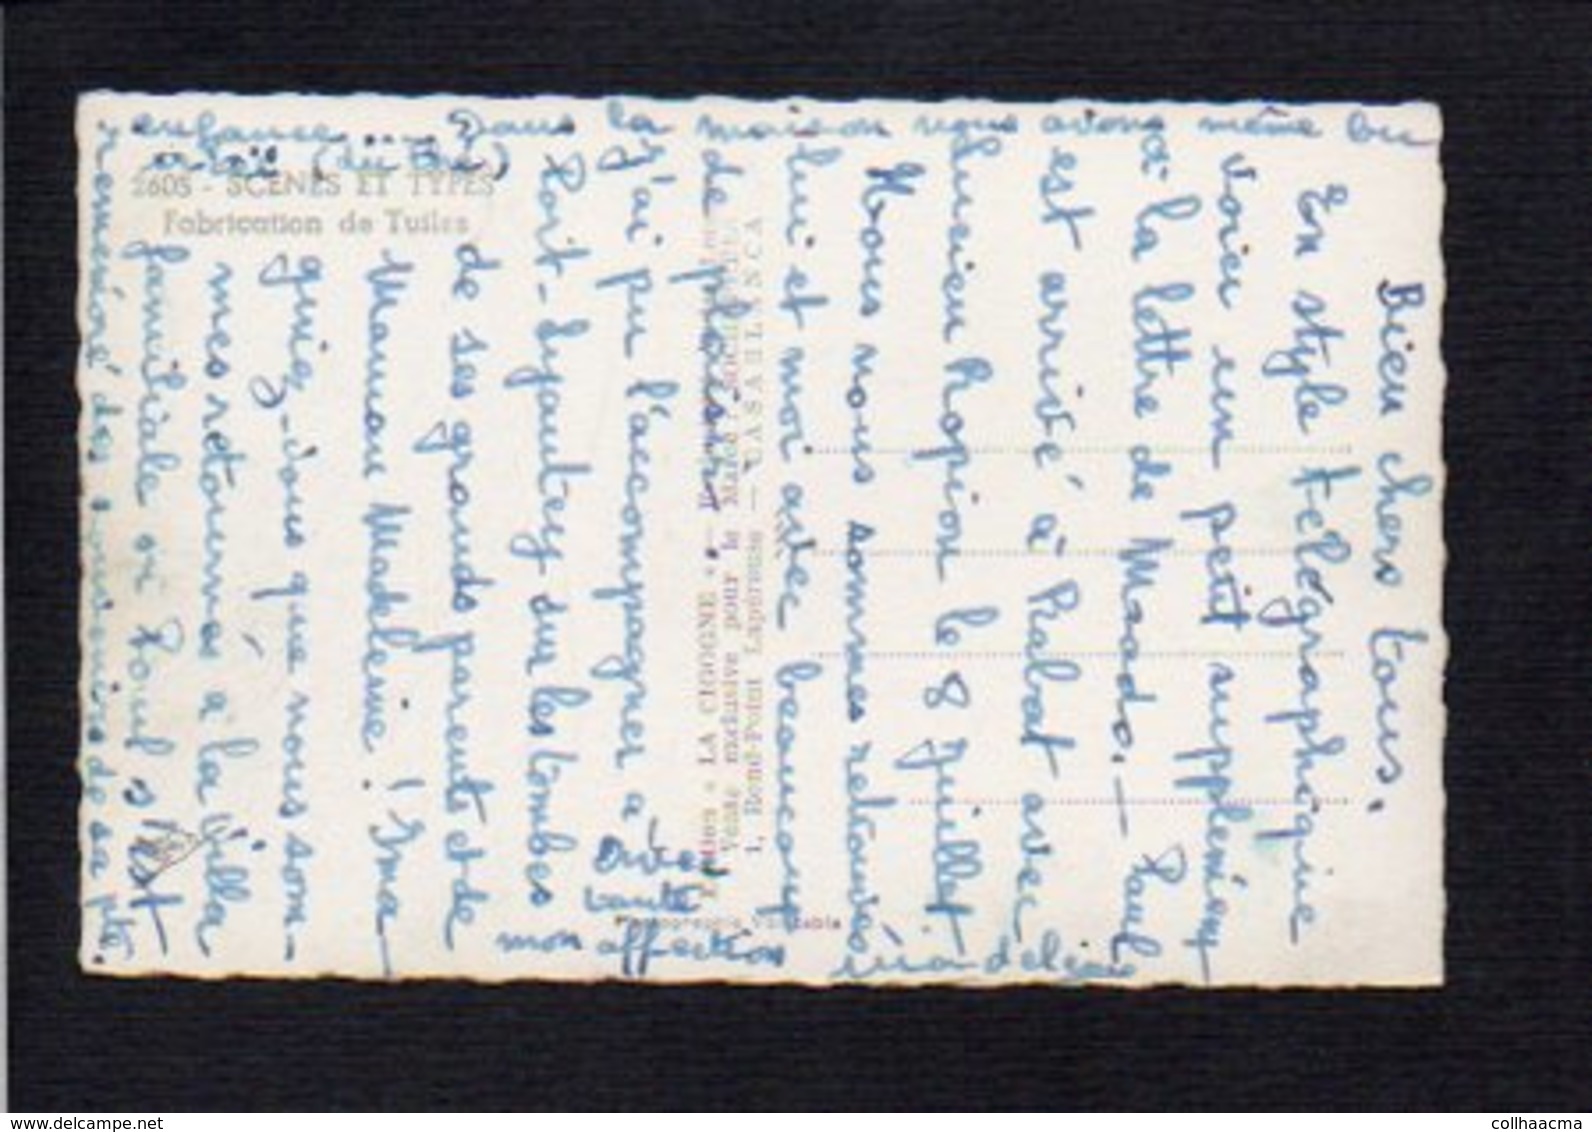 Bien chers tous.
En style télégraphique
voici un petit supplément
à la lettre de Maado. — Paul
est arrivé à Rabat avec
Lucien Ropion le 8 Juillet
Nous nous sommes retrouvés
lui et moi avec beaucoup
de plaisir,
J'ai pu l'accompagner à
Port-Lyautey sur les tombes
de ses grands parents et de
Maman Madeleine ! Ima-
ginez-vous que nous som-
mes retournés à la villa
familiale où Paul s'est
remémoré des souvenirs de sa pte
enfance .... Dans la maison nous avons même bu
(du thé)
Avec
toute
mon affection
2605 - SCÈNES ET TYPES
Fabrication de Tuiles
« LA CIGOGNE »
Vente exclusive pour le Maroc
1, Rond-Point Lapérouse — CASABLANCA
Photographie Véritable
collhaacma
delcampe.net